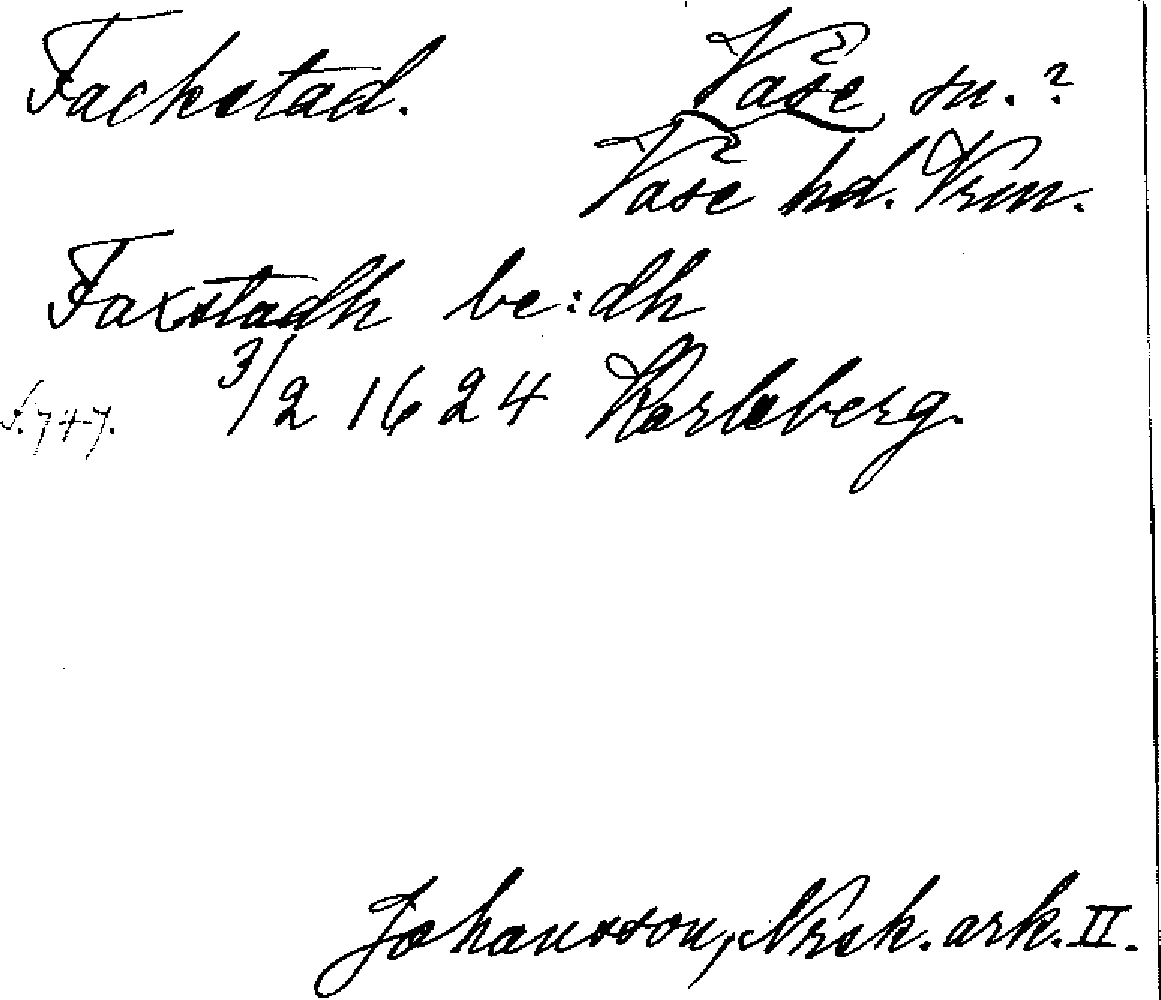 Fackstad. Väse sn.?
Väse hd. Vrm.
Faxstadh be:dh
3/2 1624 Karlsberg.
s. 747.
Johansson, Nrsk. ark. II.